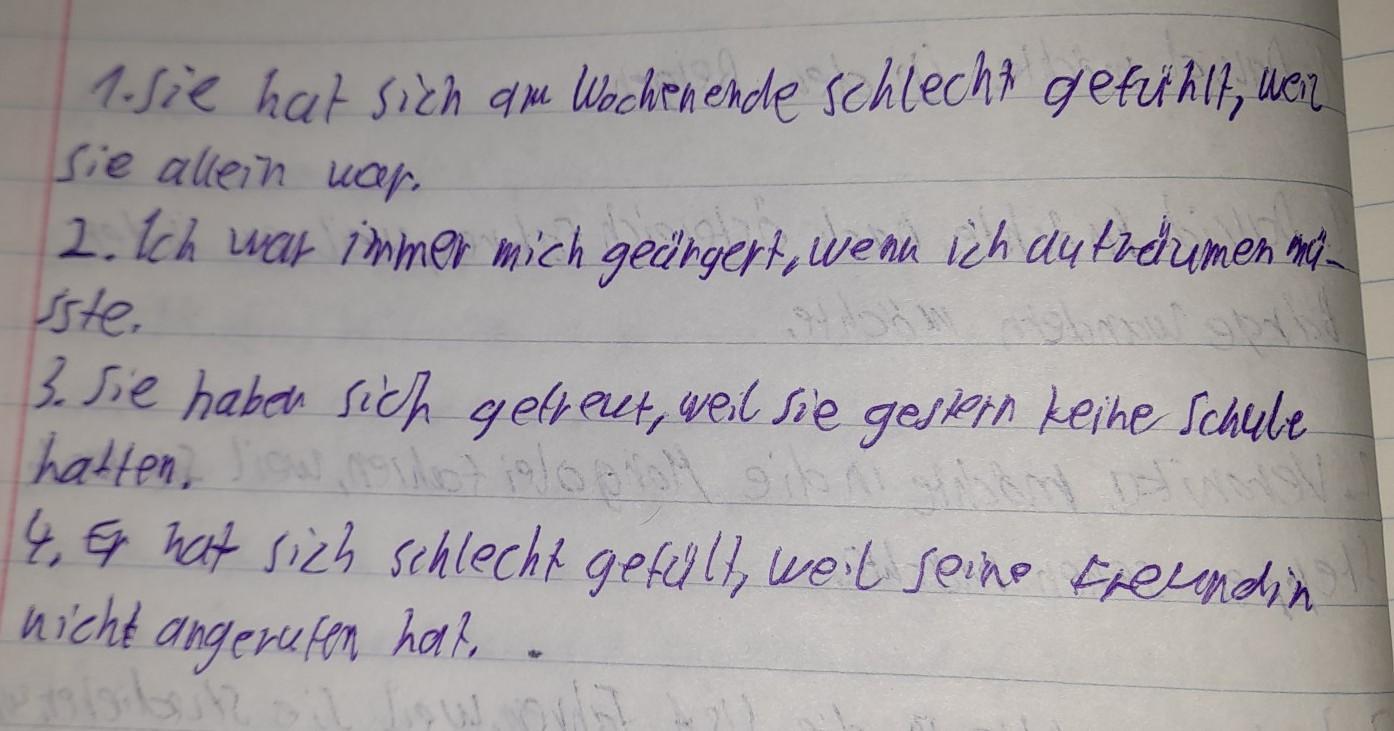 1. Sie hat sich am Wochenende schlecht gefühlt, weil
sie allein war.
2. Ich war immer mich geärgert, wenn ich aufräumen mü-
sste.
3. Sie haben sich gefreut, weil sie gestern keine Schule
hatten.
4. Er hat sich schlecht gefült, weil seine Freundin
nicht angerufen hat.